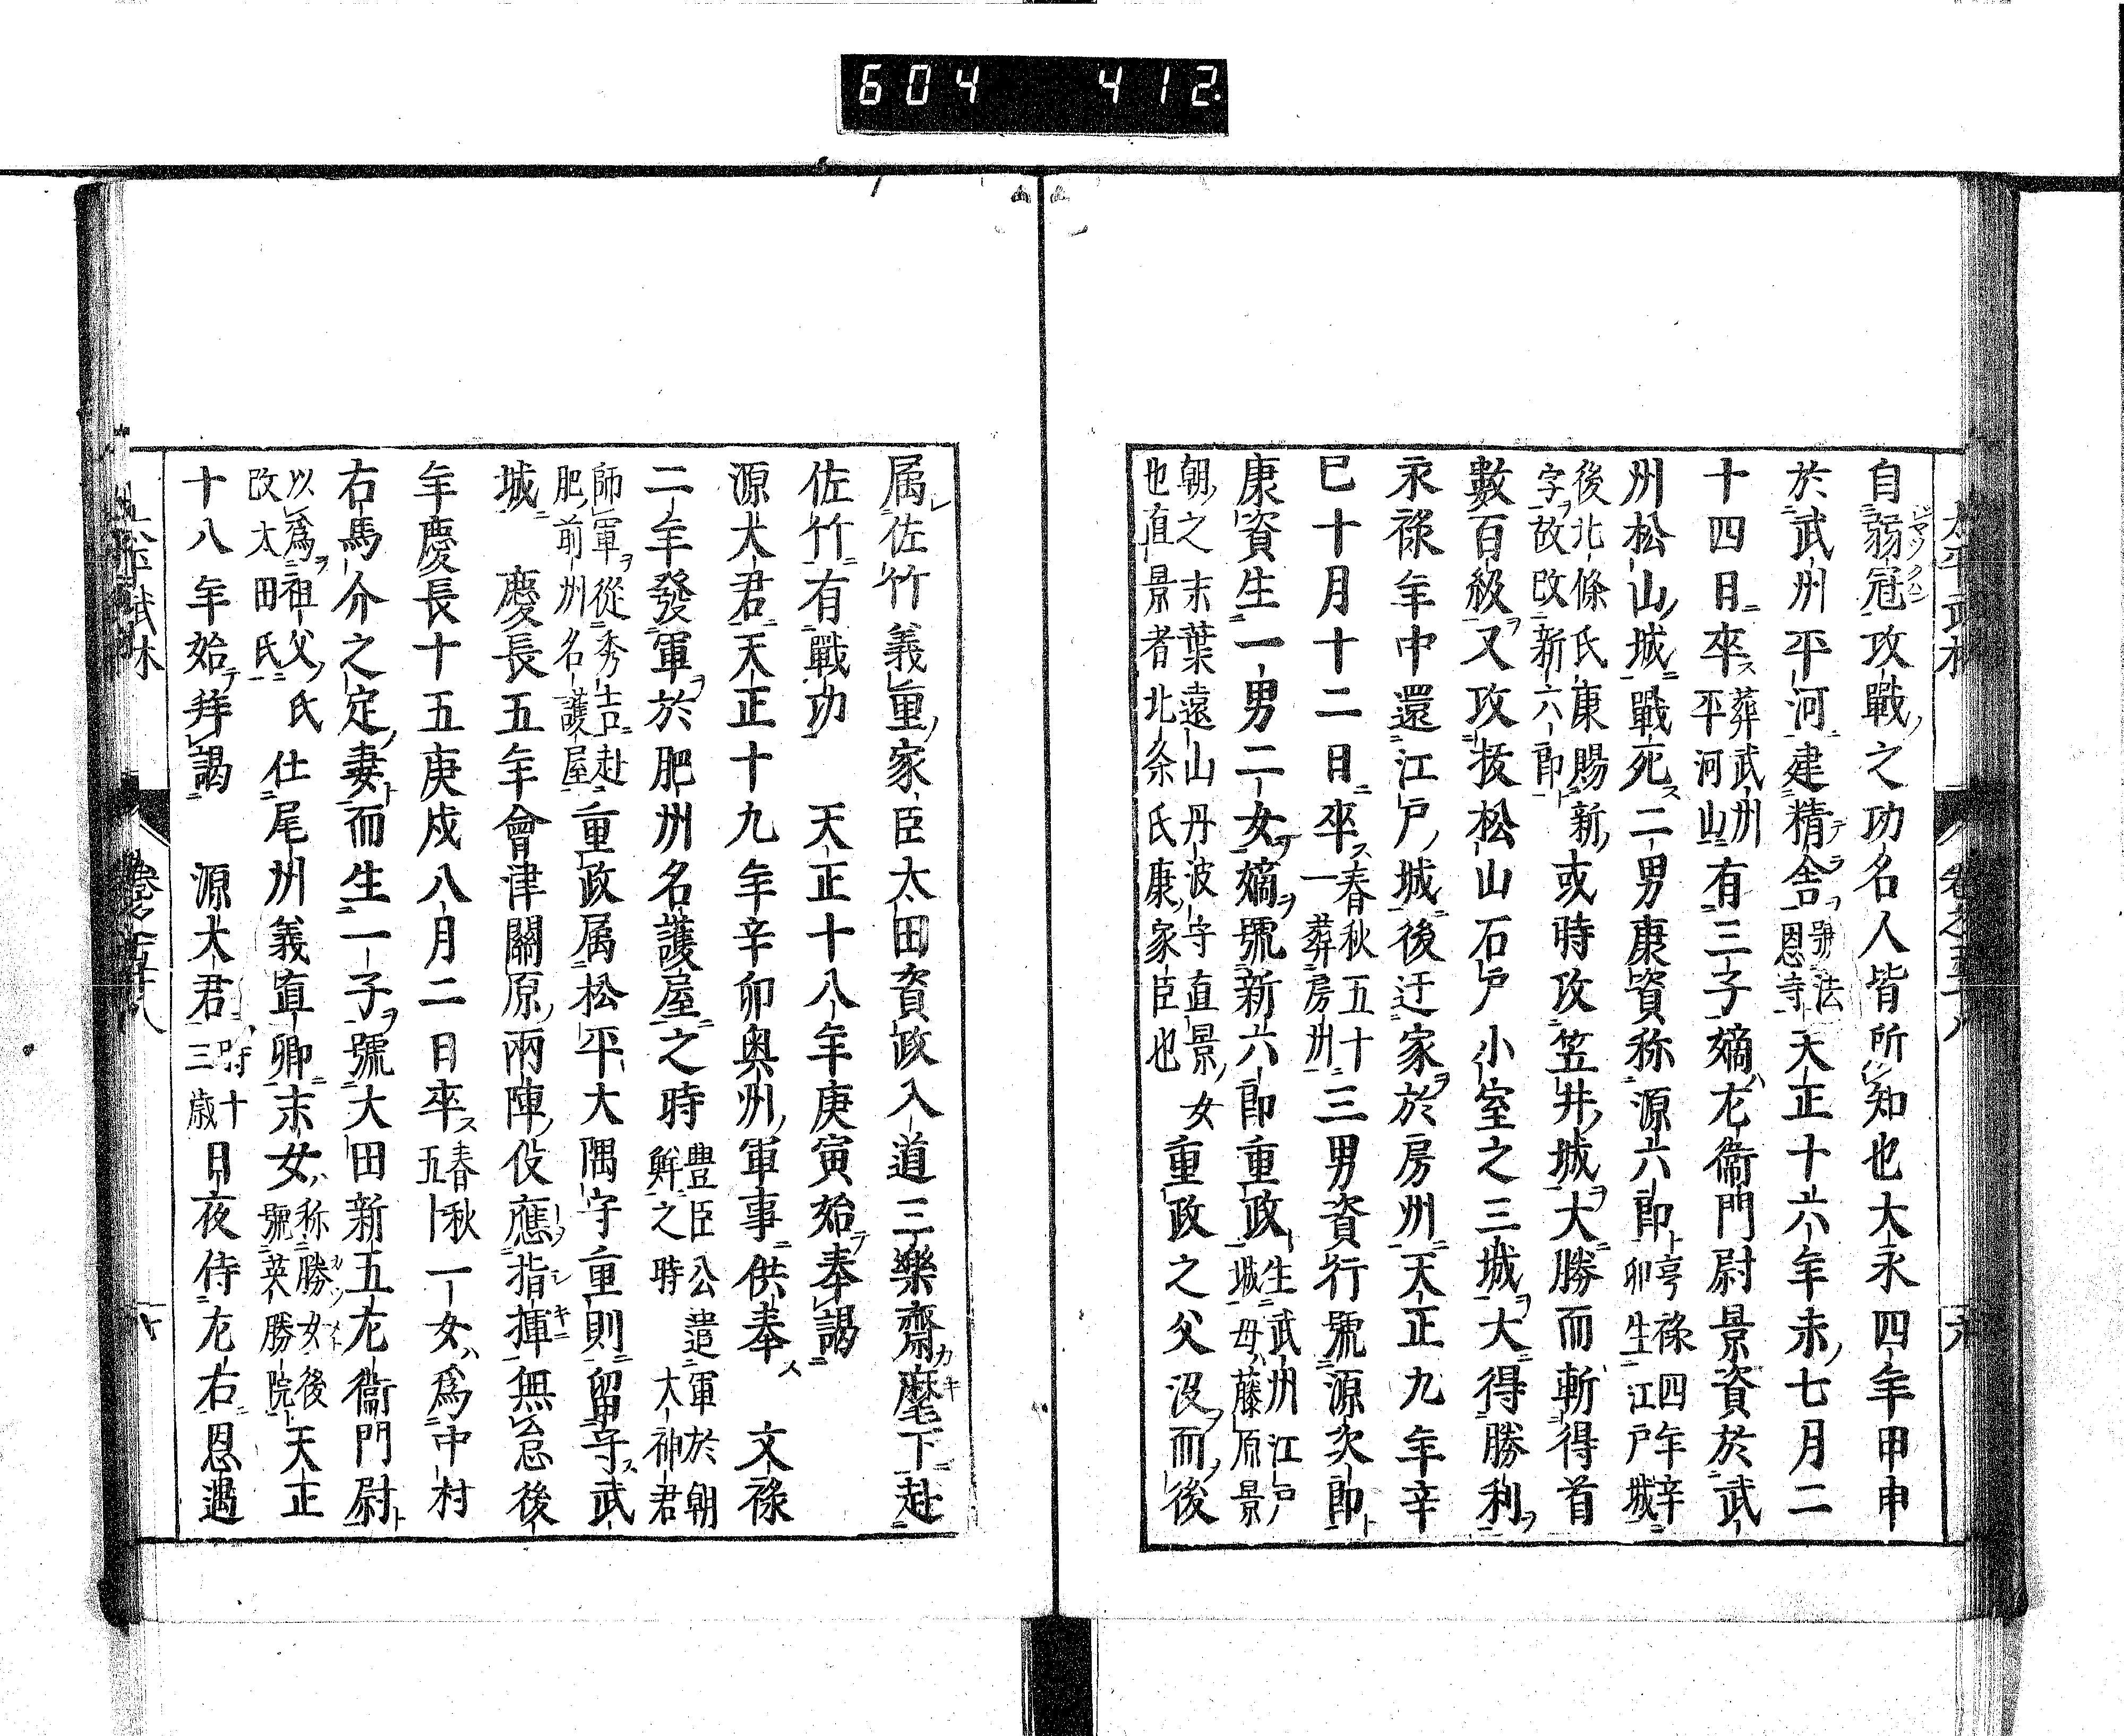 604 412
太平武林
卷之五十八
自弱冠攻戰之功名人皆所知也大永四年甲申
於武州平河建精舍號法恩寺天正十六年未七月二
十四日卒葬武州平河山有三子嫡左衞門尉景資於武
州松山城戰死二男康資称源六郎享祿四年辛卯生江戸城
後北條氏康賜新字故改新六郎或時攻笠井城大勝而斬得首
數百級又攻拔松山石戸小室之三城大得勝利
永祿年中還江戸城後迁家於房州天正九年辛
巳十月十二日卒春秋五十一葬房州三男資行號源次郎
康資生一男二女嫡號新六郎重政生武州江戸城母藤原景
朝之末葉遠山丹波守直景女也直景者北条氏康家臣也重政之父沒而後
属佐竹義重家臣太田資政入道三樂齋麾下赴
佐竹有戰功 天正十八年庚寅始奉謁
源大君天正十九年辛卯奥州軍事供奉 文祿
二年發軍於肥州名護屋之時豊臣公遣軍於朝鮮之時大神君
師軍從秀吉赴肥前州名護屋重政属松平大隅守重則留守武
城 慶長五年會津關原兩陣伇應指揮無怠後
年慶長十五庚戍八月二日卒春秋五十一女爲中村
右馬介之定妻而生一子號大田新五左衞門尉
以爲祖父氏改太田氏仕尾州義直卿末女称勝女後號英勝院天正
十八年始拜謁 源大君時十三歳日夜侍左右恩遇